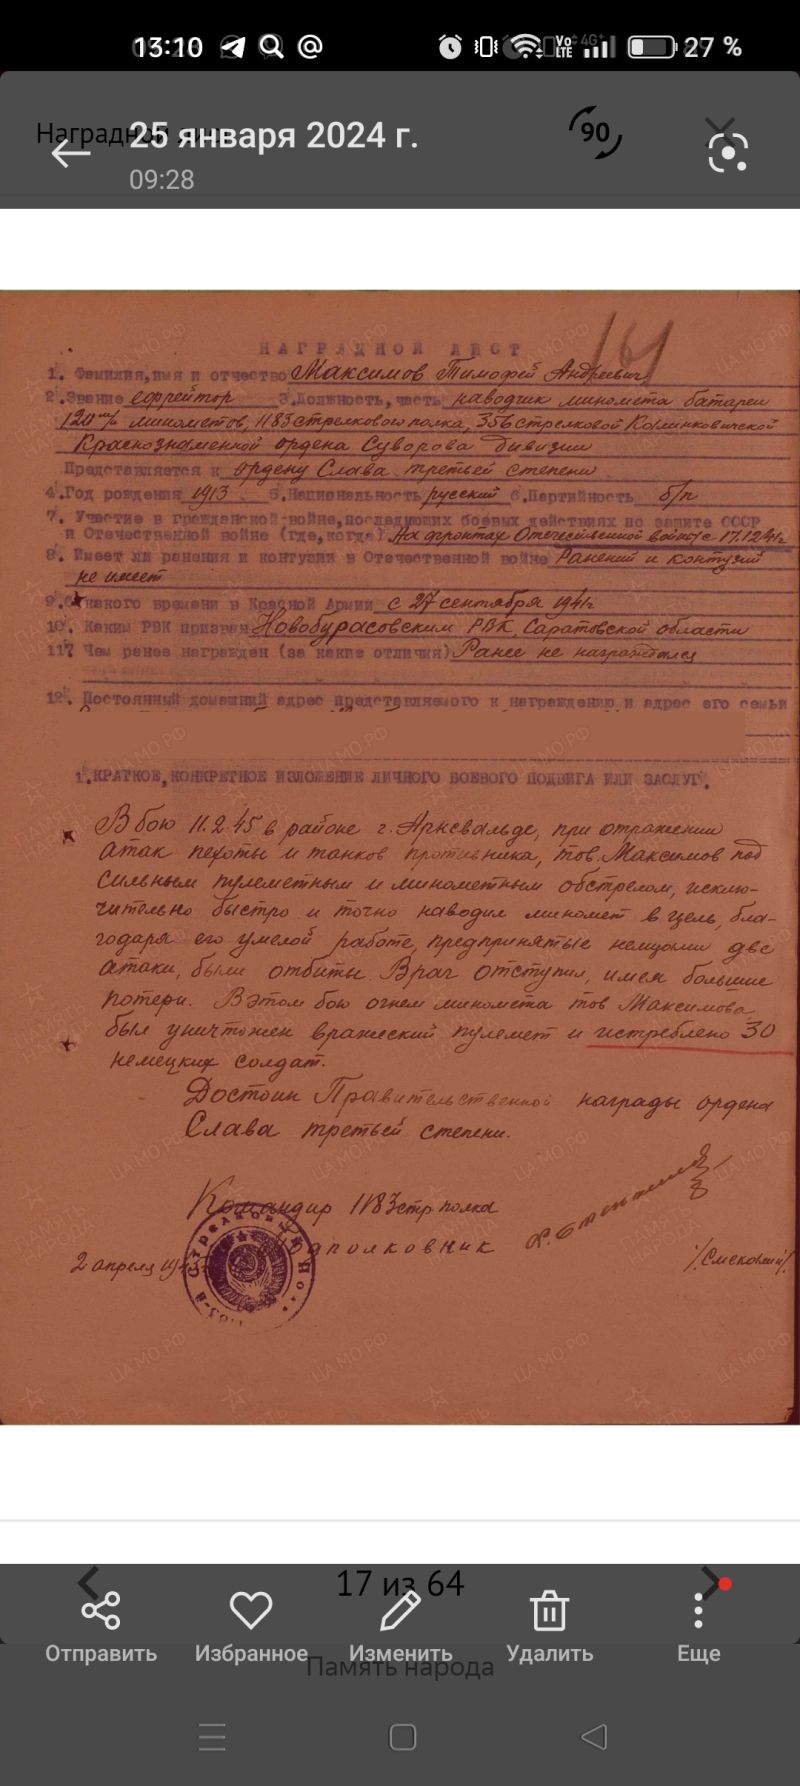 13:10
4G+
Vo LTE
27 %
Наградной лист
25 января 2024 г.
90
09:28
НАГРАДНОЙ ЛИСТ
1. Фамилия, имя и отчество Максимов Тимофей Андреевич
2. Звание ефрейтор 3. Должность, часть наводчик миномета батареи
120 м/м минометов, 1183 стрелкового полка, 356 стрелковой Калинковичской
Краснознаменной ордена Суворова дивизии
Представляется к ордену Слава третьей степени
4. Год рождения 1913 5. Национальность русский 6. Партийность б/п
7. Участие в гражданской войне, последующих боевых действиях по защите СССР
и Отечественной войне (где, когда) На фронтах Отечественной войны с 17.12.41г
8. Имеет ли ранения и контузии в Отечественной войне Ранений и контузий
не имеет
9. С какого времени в Красной Армии с 27 сентября 1941г
10. Каким РВК призван Новобурасовским РВК, Саратовской области
11. Чем ранее награжден (за какие отличия) Ранее не награждался
12. Постоянный домашний адрес представляемого к награждению и адрес его семьи
1. КРАТКОЕ, КОНКРЕТНОЕ ИЗЛОЖЕНИЕ ЛИЧНОГО БОЕВОГО ПОДВИГА ИЛИ ЗАСЛУГ.
В бою 11.2.45 в районе г. Арнсвальде, при отражении
атак пехоты и танков противника, тов. Максимов под
сильным пулеметным и минометным обстрелом, исклю-
чительно быстро и точно наводил миномет в цель, бла-
годаря его умелой работе, предпринятые немцами две
атаки, были отбиты. Враг отступил, имея большие
потери. В этом бою огнем миномета тов Максимова
был уничтожен вражеский пулемет и истреблено 30
немецких солдат.
Достоин Правительственной награды ордена
Слава третьей степени.
Командир 1183 стр полка
подполковник
2 апреля
17 из 64
Отправить Избранное Изменить Удалить Еще
Память народа